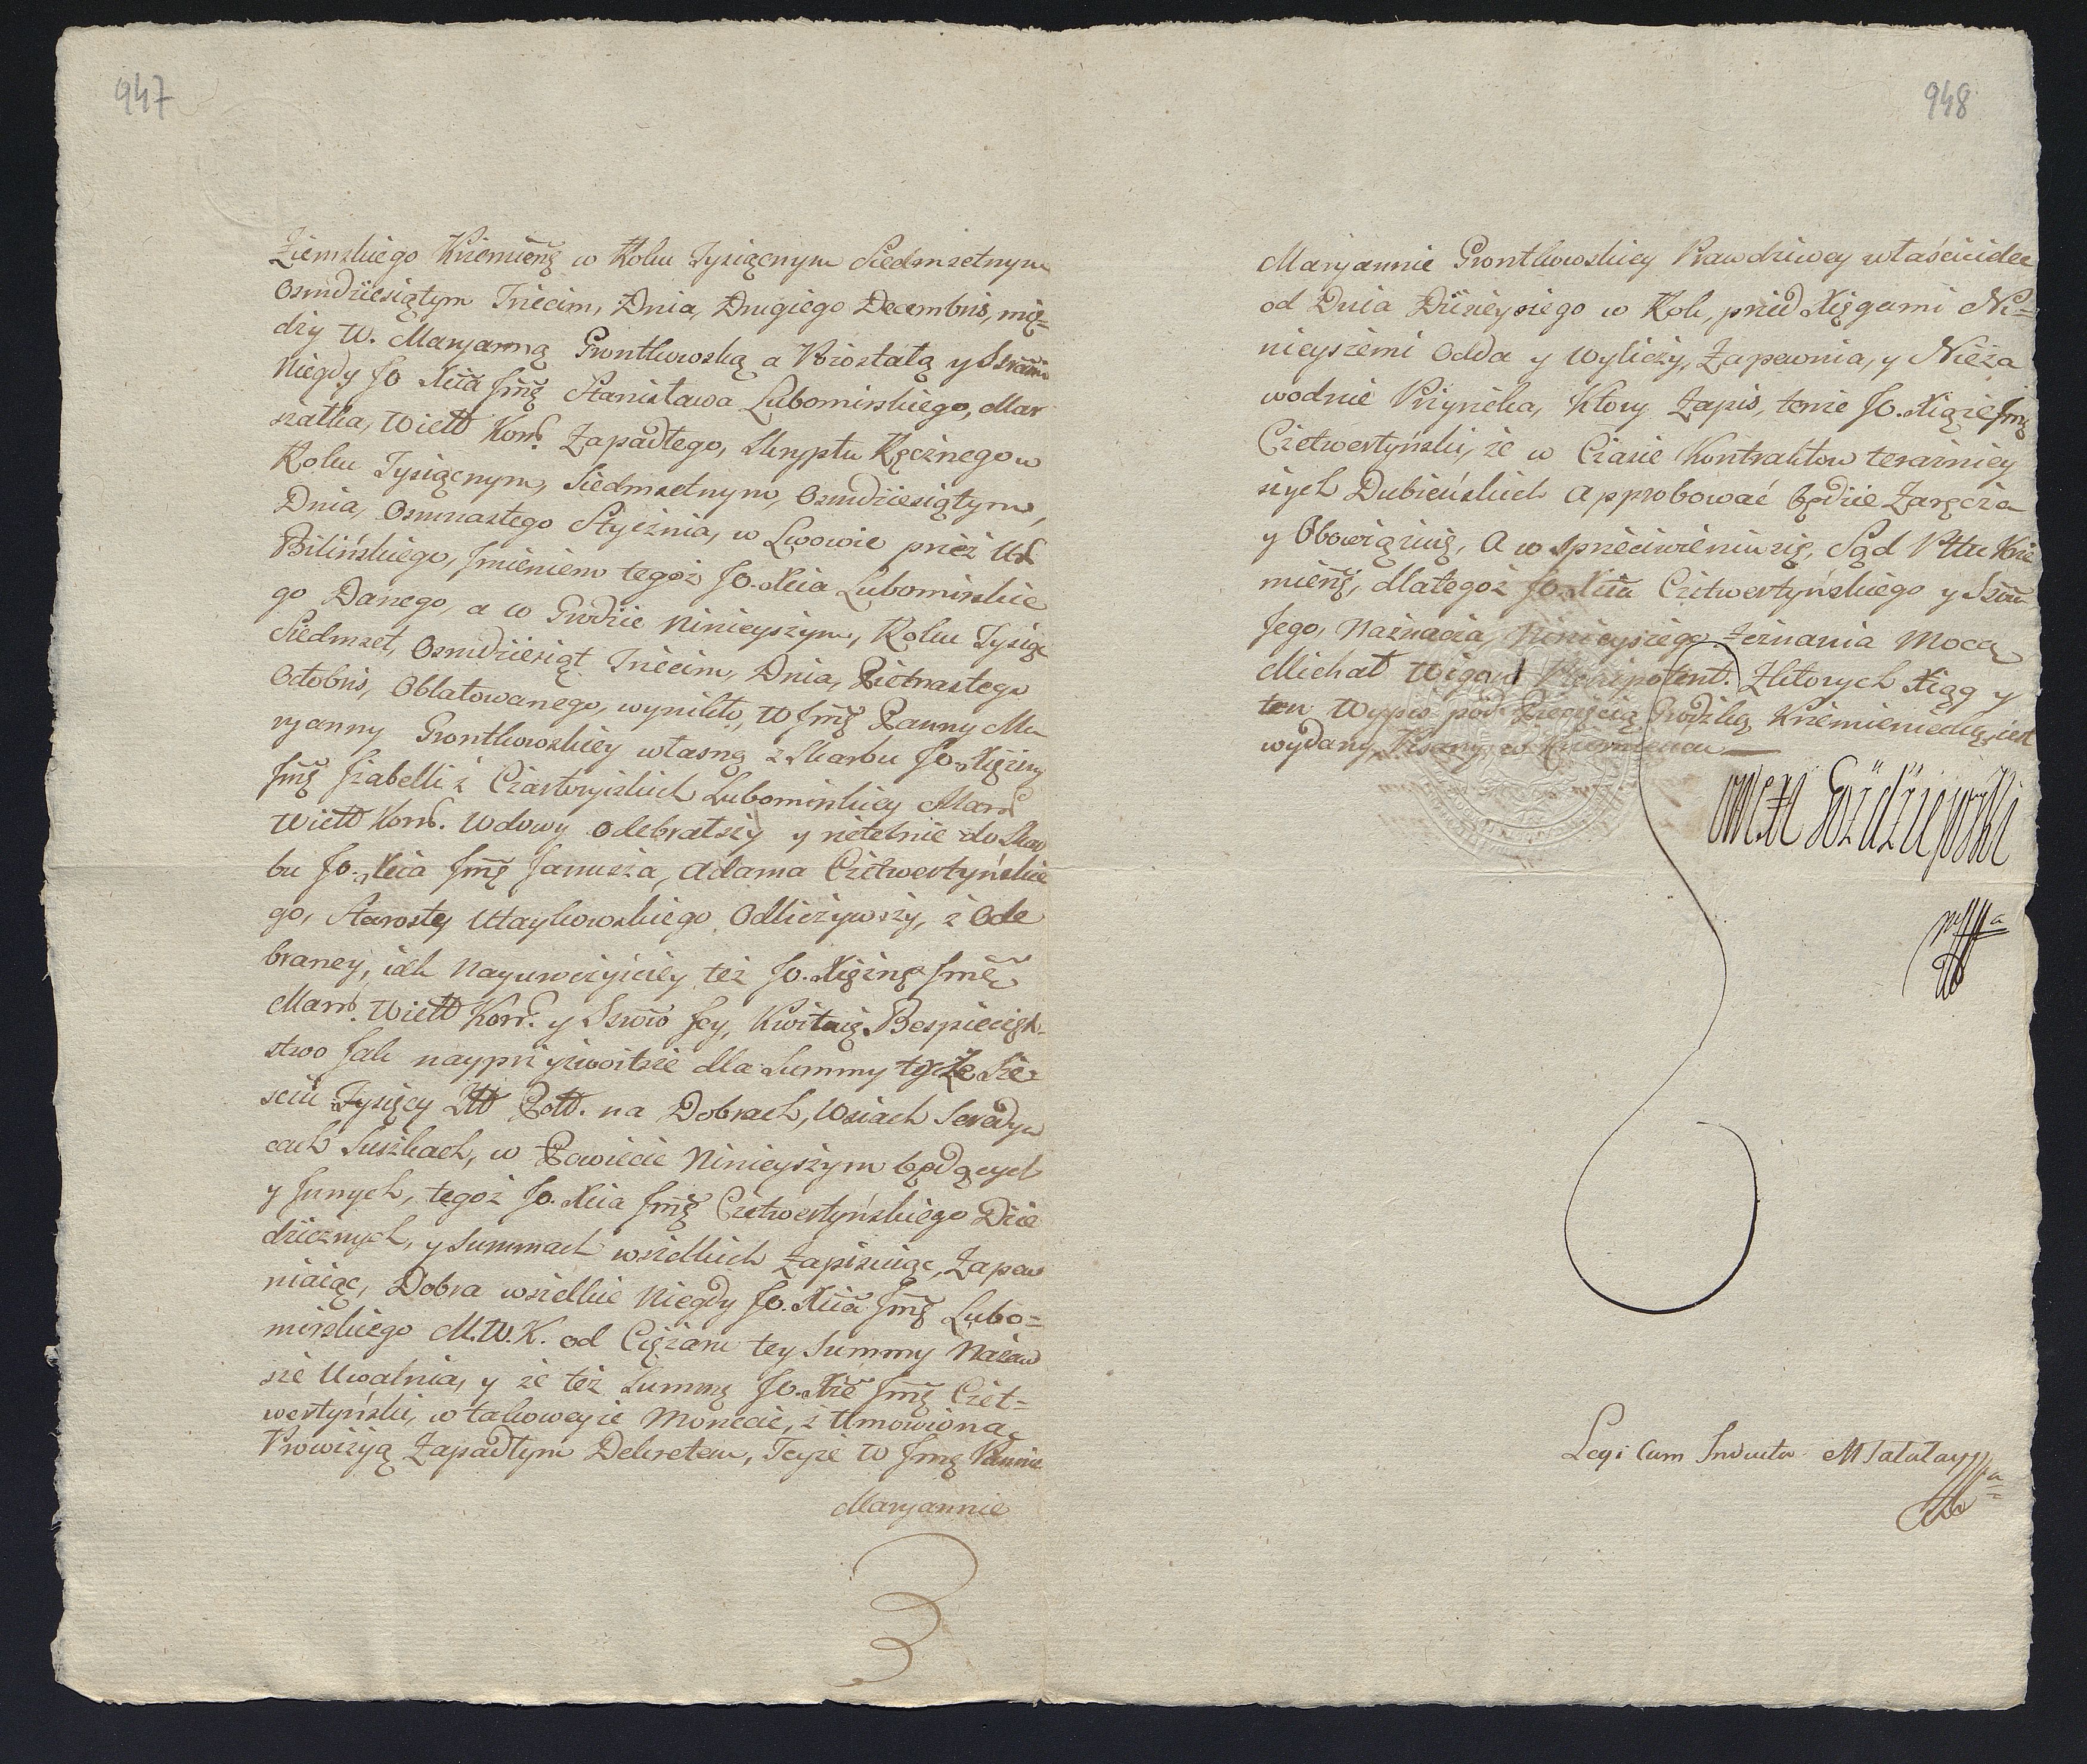 947
Ziemskiego Krzemieńg w Roku Tysiącnym Siedmsetnym
Osmdziesiątym Trzecim, Dnia, Drugiego Decembris, mię=
dzy W. Maryanną Grontkowską a Pozostałą y Sszrami
Niegdy Jo Xcia Jmg Stanisława Lubomirskiego, Mar
szałka, Wielł Korr. Zapadłego, Skryptu Ręcznego w
Roku Tysiącnym, Siedmsetnym, Osmdziesiątym,
Dnia, Osmnastego Stycznia, w Lwowie przez Ur
Bilińskiego, Jmieniem tegoż Jo. Xcia Lubomirskie
go Danego, a w Grodzie Ninieyszym, Roku Tysiąc
Siedmset, Osmdziesiąt Trzecim, Dnia, Piętnastego
Octobris, Oblatowanego, wynikło, W Jmg Panny Ma
ryanny Grontkowskiey własną z Skarbu Jo. Xiężny
Jmg Jzabelli z Czartoryskich Lubomirskiey Marr
Wielł Korr. Wdowy Odebrałszy y rzetelnie do Skar
bu Jo. Xcia Jmg Janusza, Adama Czetwertyńskie
go, Starosty Utaykowskiego Odliczywszy, z Ode
braney, iak Nayuroczyściey też Jo. Xiężnę Jmę
Marr. Wielł Korr. y Sszrow Jey, Kwituię. Bespieczeń-
stwo Jak nayprzyzwoitsze dla Summy tyże Sze
sciu Tysięcy Złł Połł. na Dobrach, Wsiach Seredyn
cach Suszkach, w Powiecie Ninieyszym będących
y Jnnych, tegoż Jo. Xcia Jmg Czetwertyńskiego Dzie
dzicznych, y Summach wszelkich Zapisuiąc, Zapew
niaiąc, Dobra wszelkie Niegdy Jo. Xcia Jmg Lubo=
mirskiego M. W. K. od Ciężaru tey Summy Nazaw
sze Uwalnia, y że też Summę Jo. Xże Jmg Czet=
wertyński, w takoweyże Monecie, z Umowioną
Prowizyą Zapadłym Dekretem, Teyże W Jmg Pannie
Maryannie
948
Maryannie Grontkowskiey Prawdziwey właścicielce
od Dnia Dzisieyszego w Rok, przed Xięgami Ni=
nieyszemi Odda y Wyliczy, Zapewnia, y Nieza
wodnie Przyrzeka, Ktory Zapis, tenże Jo. Xiąże Jmg
Czetwertyński, że w Czasie Kontraktow terazniey
szych Dubieńskich Approbować będzie Zaręcza
y Obowiązuię, A w Sprzeciwieniu się, Sąd Pttu Krze
mieńg, dlategoż Jo. Xcia Czetwertyńskiego y Sszrow
Jego, Naznacza, Ninieyszego Zeznania Mocą
Michał Wigand Plenipotent. Zktorych Xiąg y
ten Wypis pod Pieczęcią Grodzką Krzemieniecką, iest
wydany, Pisany w Krzemiencu
Legi Cum Inducta M Tatulay